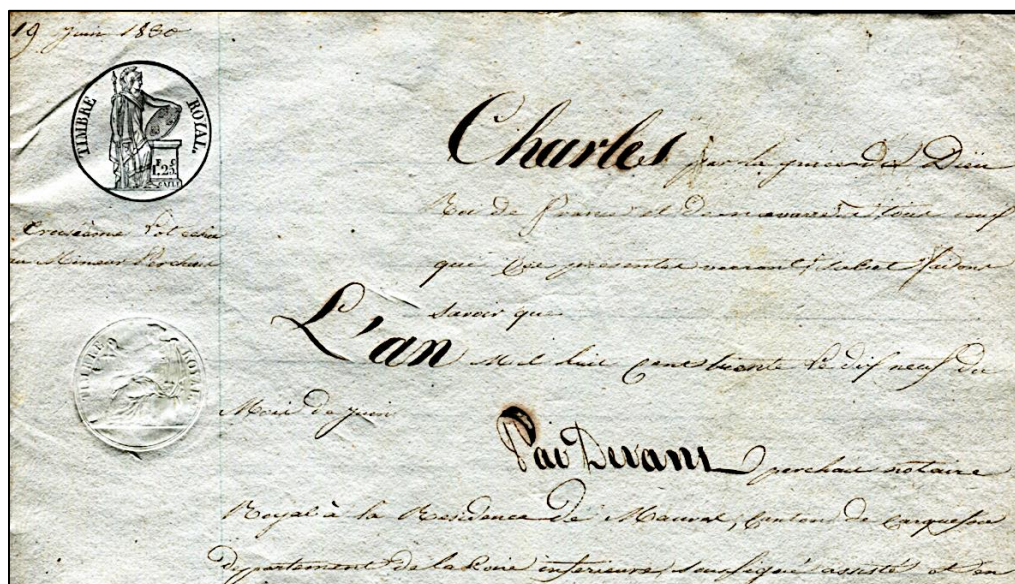 19 juin 1830
TIMBRE ROYAL
F. C.
1.25
Charles par la grace de Dieu
Roi de france et de navarre a tous ceux
que ces presentes verront salut faisons
savoir que
L'an Mil huit Cent trente le dix neuf du
Mois de juin
Par Devant perchais notaire
Royal à la Residence de Mauves, Canton de Carquefou
departement de la Loire inferieure, soussigné assisté et en